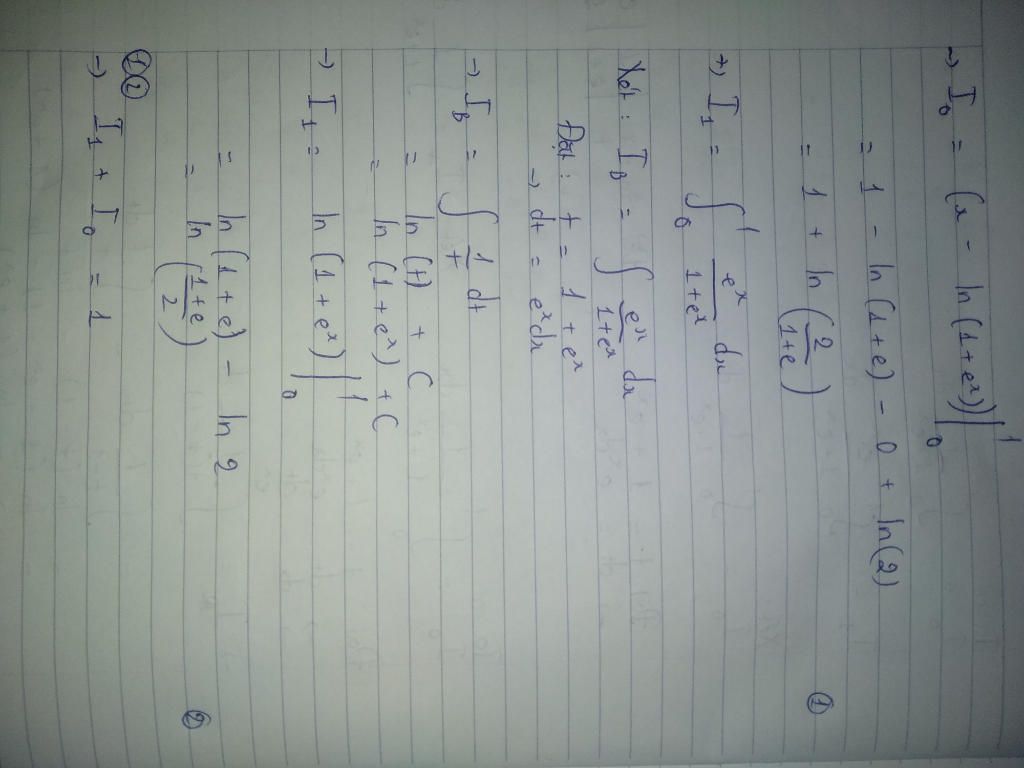 → I₀ = (x - ln(1+eˣ))|₀¹
= 1 - ln(1+e) - 0 + ln(2)
= 1 + ln(2/(1+e)) ①
+) I₁ = ∫₀¹ eˣ/(1+eˣ) dx
Xét: I_B = ∫ eˣ/(1+eˣ) dx
Đặt: t = 1 + eˣ
→ dt = eˣdx
→ I_B = ∫ 1/t dt
= ln(t) + C
= ln(1+eˣ) + C
→ I₁ = ln(1+eˣ)|₀¹
= ln(1+e) - ln 2
= ln((1+e)/2) ②
①②
→ I₁ + I₀ = 1